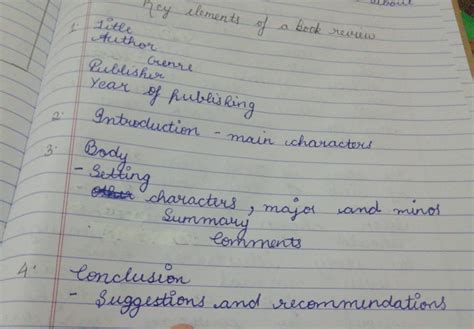 about
Key elements of a book review
1. Title
Author
Genre
Publisher
Year of publishing
2. Introduction - main characters
3. Body
- Setting
- characters, major and minor
Summary
Comments
4. Conclusion
- Suggestions and recommendations